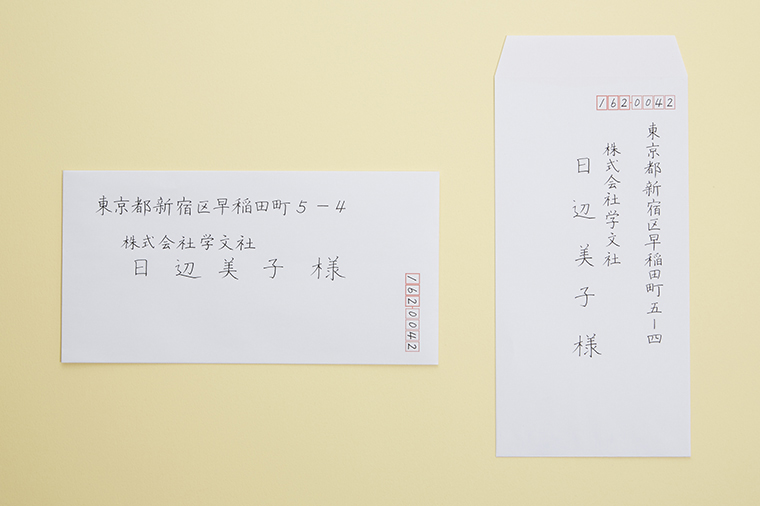 東京都新宿区早稲田町5-4
株式会社学文社
日辺美子様
1620042
1620042
東京都新宿区早稲田町五-四
株式会社学文社
日辺美子様